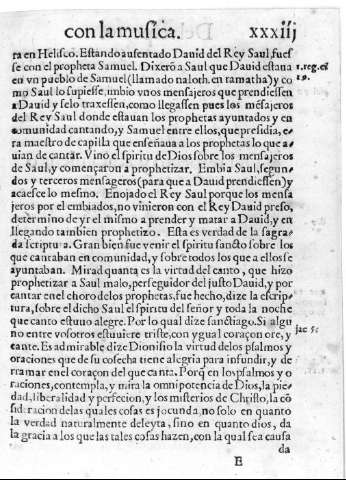 con la musica. xxxiij
ra en Heliseo. Estando ausentado Dauid del Rey Saul, fues
se con el propheta Samuel. Dixerõ a Saul que Dauid estaua 1. reg. ca
en vn pueblo de Samuel (llamado naloth. en ramatha) y co 19.
mo Saul lo supiesse, umbio vnos mensajeros que prendiessen
a Dauid y selo traxessen, como llegassen pues los mẽsajeros
del Rey Saul donde estauan los prophetas ayuntados y en
comunidad cantando, y Samuel entre ellos, que presidia, e,
ra maestro de capilla que enseñaua a los prophetas lo que a,
uian de cantar. Vino el spiritu de Dios sobre los mensajeros
de Saul, y començaron a prophetizar. Embia Saul, segun,
dos y terceros mensageros (para que a Dauid prendiessen) y
acaesce lo mesmo. Enojado el Rey Saul porque los mensa
jeros por el embiados, no vinieron con el Rey Dauid preso,
determino de yr el mismo a prender y matar a Dauid, y en
llegando tambien prophetizo. Esta es verdad de la sagra,
da scriptura. Gran bien fue venir el spiritu sancto sobre los
que cantaban en comunidad, y sobre todos los que a ellos se
ayuntaban. Mirad quanta es la virtud del canto, que hizo
prophetizar a Saul malo, perseguidor del justo Dauid, y por
cantar en el choro delos prophetas. fue hecho, dize la escrip,
tura, sobre el dicho Saul el spiritu del señor y toda la noche
que canto estuuo alegre. Por lo qual dize sanctiago. Si algu jac 5:
no entre vosotros estuuiere triste, con ygual coraçon ore, y
cante. Es admirable dize Dionisio la virtud delos psalmos y
oraciones que de su cosecha tiene alegria para infundir, y de
rramar en el coraçon del que canta. Porq̃ en los psalmos y o
raciones, contempla, y mira la omnipotencia de Dios, la pie,
dad, liberalidad y perfecion, y los misterios de Christo, la cõ
sideracion delas quales cosas es jocunda, no solo en quanto
la verdad naturalmente deleyta, sino en quanto dios, da
la gracia a los que las tales cosas hazen, con la qual sea causa
da
E